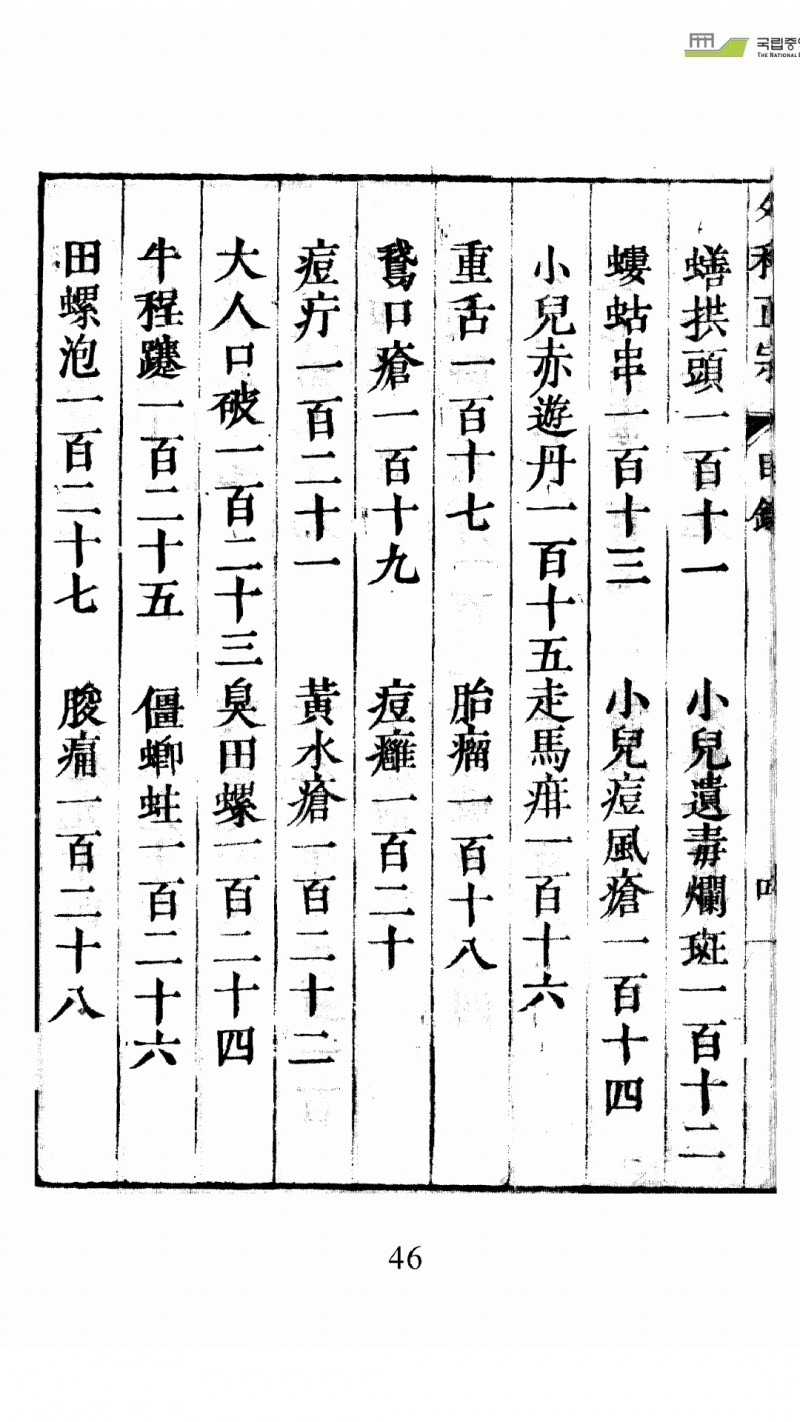 국립중
THE NATIONAL
外科正宗 目錄
蟮拱頭一百十一 小兒遺毒爛斑一百十二
螻蛄串一百十三 小兒痘風瘡一百十四
小兒赤遊丹一百十五走馬疳一百十六
重舌一百十七 胎瘤一百十八
鵞口瘡一百十九 痘癰一百二十
痘疔一百二十一 黃水瘡一百二十二
大人口破一百二十三臭田螺一百二十四
牛程一百二十五 僵蝍蛀一百二十六
田螺泡一百二十七 痛一百二十八
46